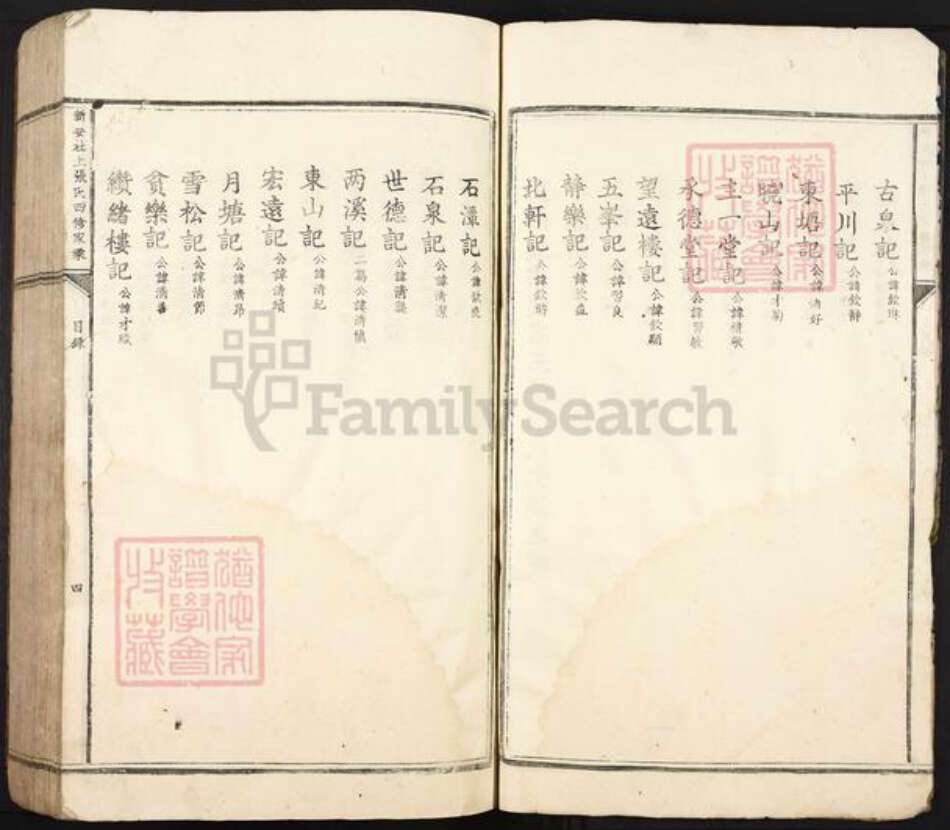 古泉記 公諱欽琳
平川記 公諱欽靜
東塘記 公諱清好
曉山記 公諱才
主一堂記 公諱習敏
永德堂記 公諱習敏
望遠樓記 公諱欽顒
五峯記 公諱習良
靜樂記 公諱欽益
北軒記 公諱欽時
石潭記 公諱欽堯
石泉記 公諱清潔
世德記 公諱清
两溪記 二篇公諱清慎
東山記 公諱清紀
宏遠記 公諱清
月塘記 公諱清昂
雪松記 公諱清節
貧樂記 公諱清善
纘緒樓記 公諱才
新安社上張氏四修家乘
目錄
四
猶他家譜學會收藏
猶他家譜學會收藏
FamilySearch